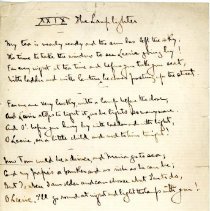 XXIX The Lamplighter
My tea is nearly ready and the sun has left the sky;
It's time to take the window to see Leerie going by;
For every night at tea time and before you take your seat,
With ladder and with lantern he comes posting up the street.
For we are very lucky, with a lamp before the door,
And Leerie stops to light it as he lights so many more;
And O! before you hurry by with ladder and with light,
O Leerie, see a little child and nod to him tonight!
Now Tom would be a driver, and Maria go to sea,
And my papa's a banker and as rich as he can be;
But I, when I am older and can choose what I'm to do,
O Leerie, I'll go round at night and light the lamps with you!